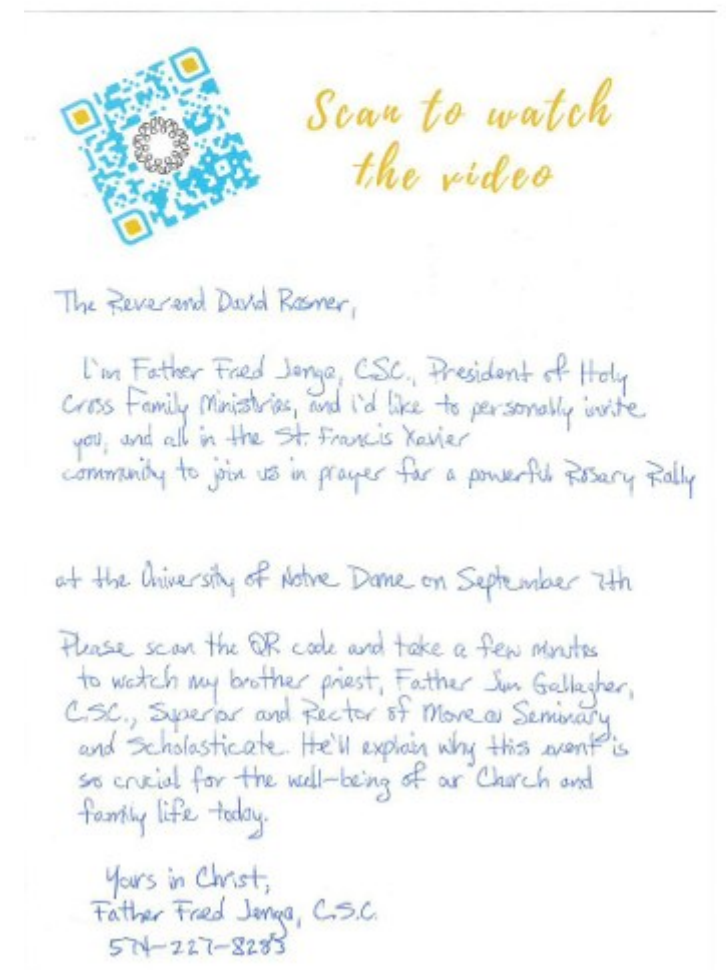 Scan to watch
the video
The Reverend David Rosmer,
I'm Father Fred Jenga, CSC., President of Holy
Cross Family Ministries, and i'd like to personally invite
you, and all in the St. Francis Xavier
community to join us in prayer for a powerful Rosary Rally
at the University of Notre Dame on September 7th
Please scan the QR code and take a few minutes
to watch my brother priest, Father Jim Gallagher,
C.SC., Superior and Rector of Moreau Seminary
and Scholasticate. He'll explain why this event is
so crucial for the well-being of our Church and
family life today.
Yours in Christ,
Father Fred Jenga, C.S.C.
574-227-8283